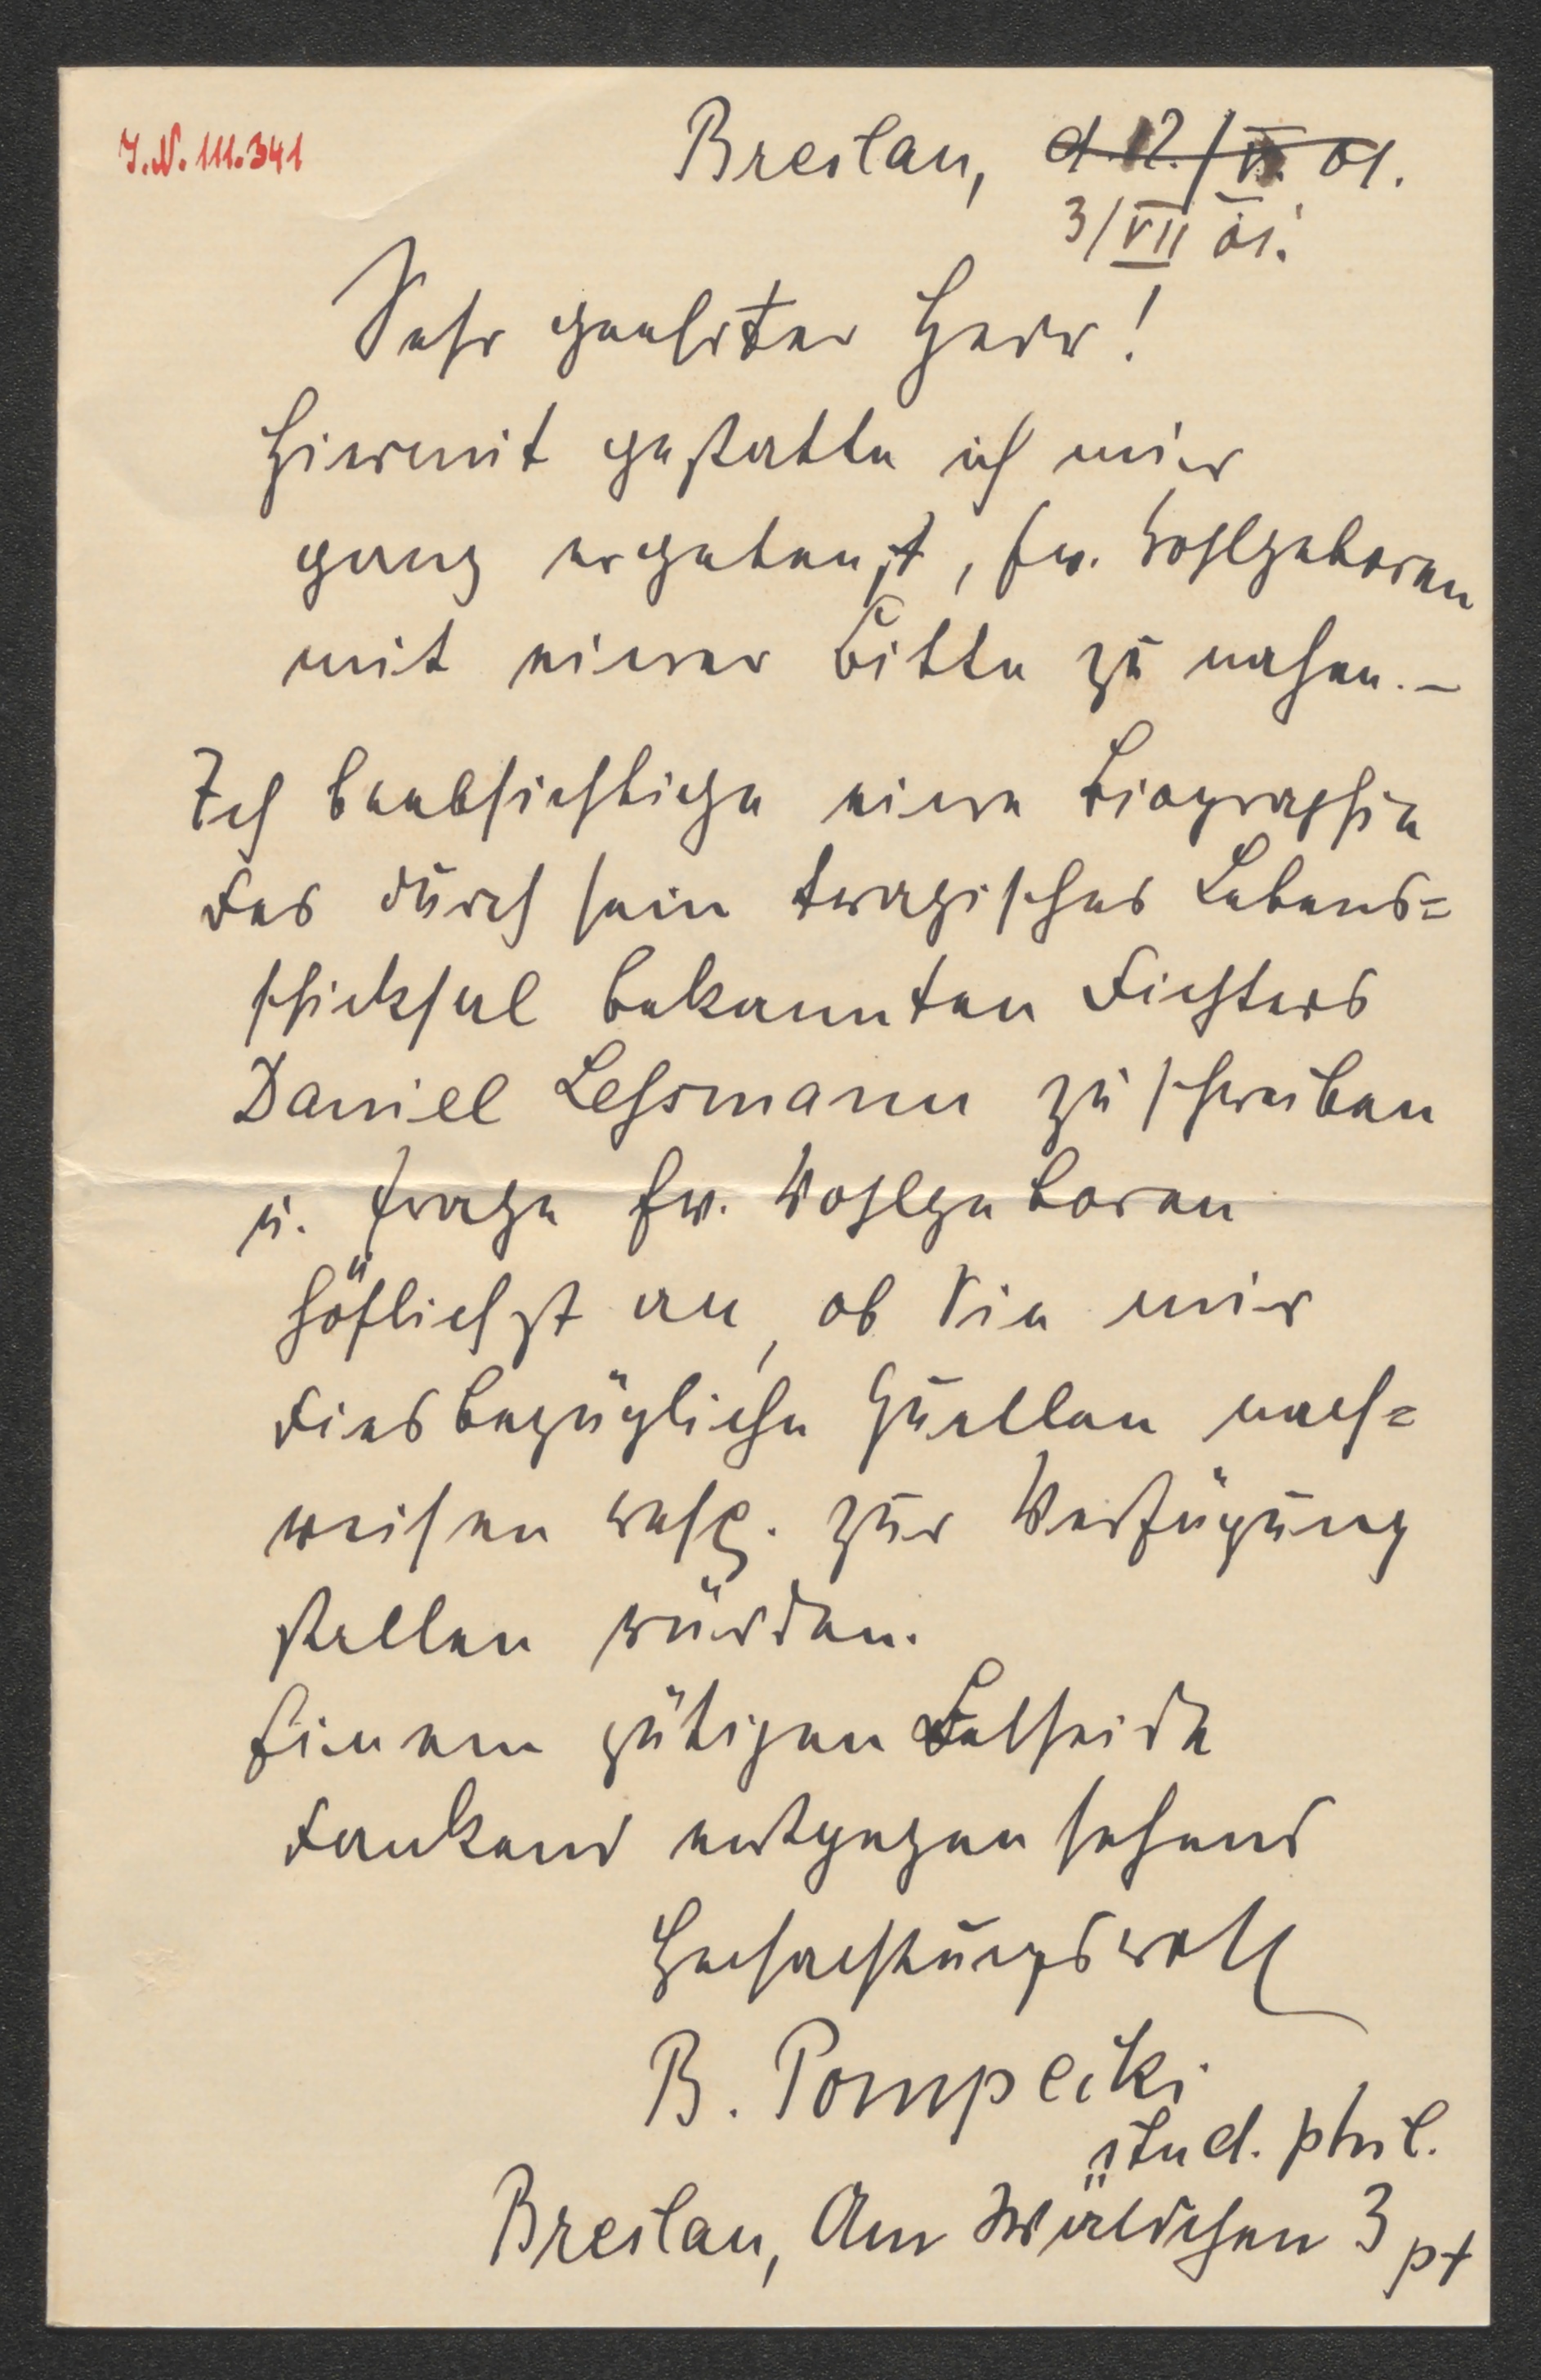 J.N. 111.341
Breslau, d. 12./VI. 01.
3/VII 01.
Sehr geehrter Herr!
Hiermit gestatte ich mir
ganz ergebenst, Ew. Wohlgeboren
mit einer Bitte zu nahen. –
Ich beabsichtige eine Biographie
des durch sein tragisches Lebens=
schicksal bekannten Dichters
Daniel Lessmann zu schreiben
u. frage Ew. Wohlgeboren
höflichst an, ob Sie mir
diesbezügliche Quellen nach=
weisen resp. zur Verfügung
stellen würden.
Einem gütigen Bescheide
dankend entgegensehend
Hochachtungsvoll
B. Pompecki
stud. phil.
Breslau, Am Wäldchen 3 pt